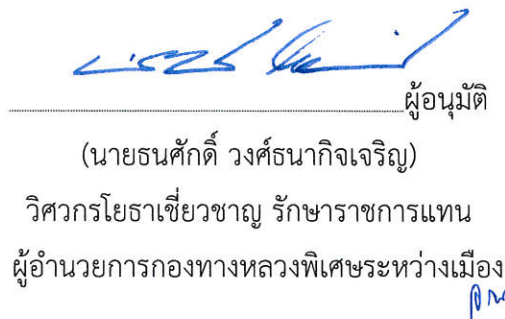 ผู้อนุมัติ
(นายธนศักดิ์ วงศ์ธนากิจเจริญ)
วิศวกรโยธาเชี่ยวชาญ รักษาราชการแทน
ผู้อำนวยการกองทางหลวงพิเศษระหว่างเมือง